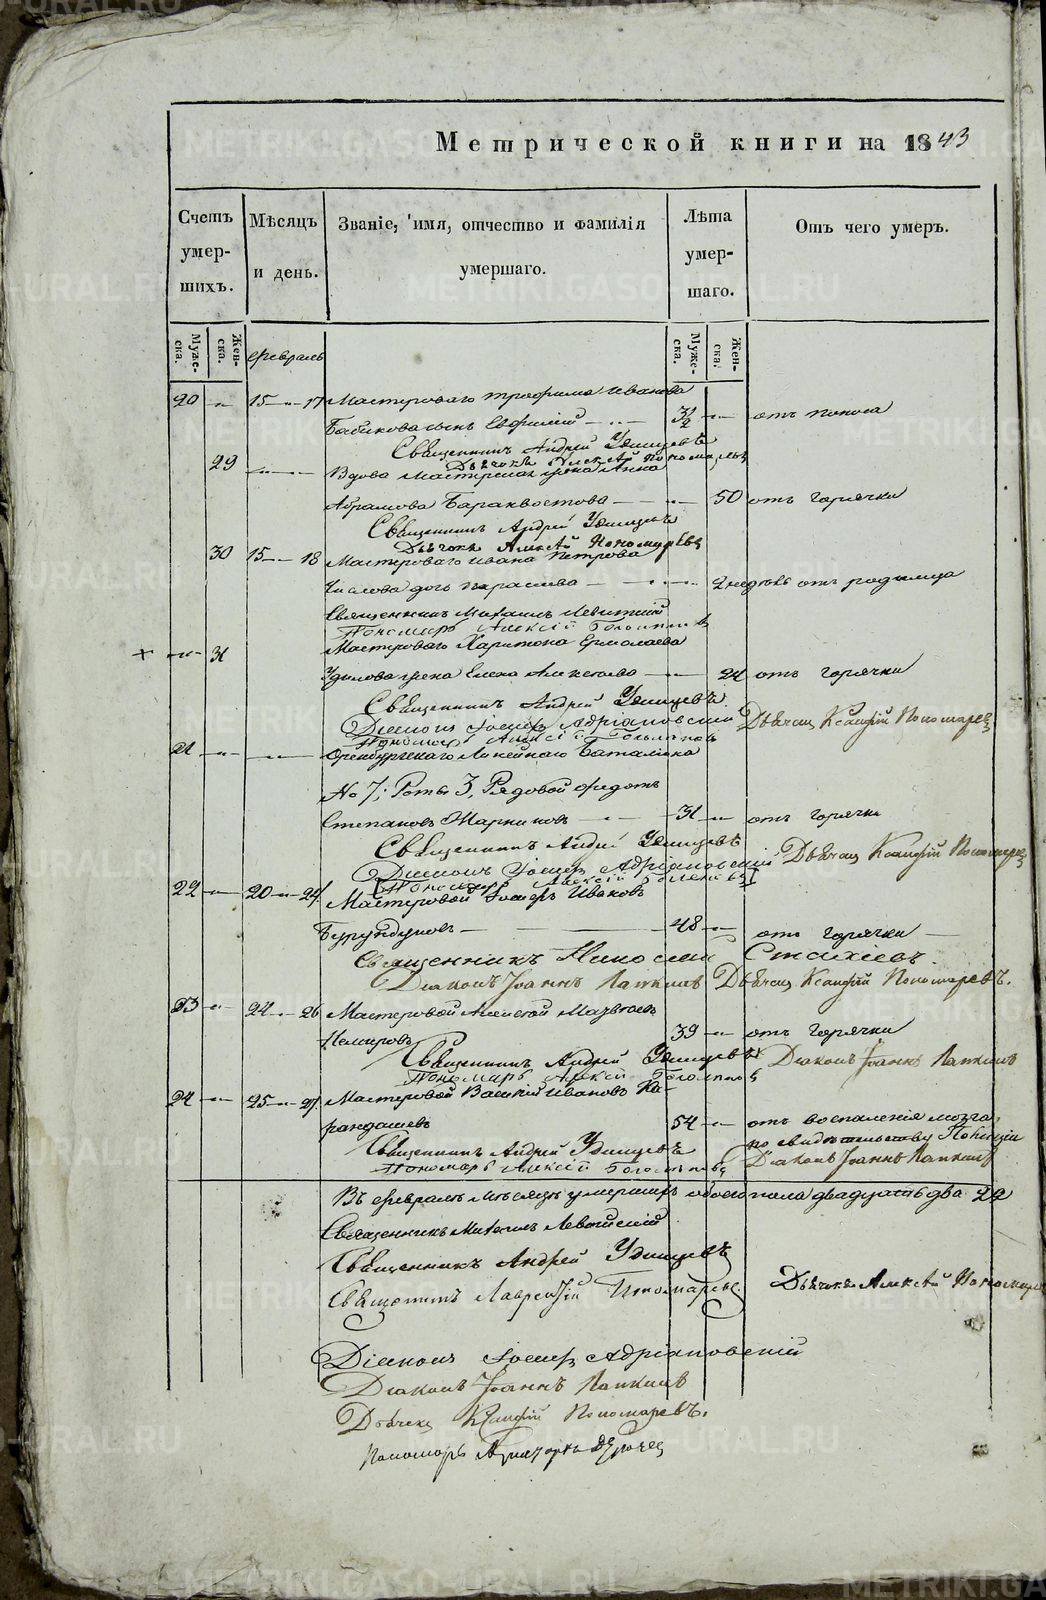 Метрической книги на 1843
Счетъ умер-шихъ.
Мѣсяцъ и день.
Званіе, имя, отчество и фамилія умершаго.
Лѣта умер-шаго.
Отъ чего умеръ.
Муже-ска.
Жен-ска.
Муже-ска.
Жен-ска.
Февраль
20 — 15 — 17 Мастероваго Трофима Иванова
сынъ Евфимій — отъ поноса
Священникъ Андрей Удинцевъ
Дьячокъ Алексѣй Пономаревъ
29 Вдова Мастерская жена Анна
Абрамова — 50 отъ горячки
Священникъ Андрей Удинцевъ
Дьячокъ Алексѣй Пономаревъ
30 15 — 18 Мастероваго Ивана Петрова
дочь Параскева — 2 недѣль отъ родимца
Священникъ Михаилъ Левитскій
Пономарь Алексій
31 Мастероваго Харитона Ермолаева
жена Елена Алексѣева — 24 отъ горячки
Священникъ Андрей Удинцевъ
Діаконъ Іосифъ Адріановскій Дьячокъ Ксанфій Пономаревъ
Пономарь Алексій
21 — Оренбургскаго Линейнаго Баталіона
№ 7; Роты 3, Рядовой Федотъ
Степановъ — 31 — отъ горячки
Священникъ Андрей Удинцевъ
Діаконъ Іосифъ Адріановскій Дьячокъ Ксанфій Пономаревъ
Пономарь Алексій
22 — 20 — 24 Мастеровой Іосифъ Ивановъ
Бурундуковъ — 48 — отъ горячки
Священникъ Николай Стахіевъ
Діаконъ Іоаннъ Лапкинъ Дьячокъ Ксанфій Пономаревъ.
23 — 24 — 26 Мастеровой Алексѣй Матвѣевъ
Немировъ 39 — отъ горячки
Священникъ Андрей Удинцевъ Діаконъ Іоаннъ Лапкинъ
Пономарь Алексій
24 — 25 — 27 Мастеровой Василій Ивановъ Ка-
рандашевъ 54 — отъ воспаленія мозга,
по свидѣтельству Полиціи
Священникъ Андрей Удинцевъ Діаконъ Іоаннъ Лапкинъ
Пономарь Алексій
Въ Февралѣ мѣсяцѣ умершихъ обоего пола двадцать два 22
Священникъ Михаилъ Левитскій
Священникъ Андрей Удинцевъ
Дьячокъ Алексѣй Пономаревъ
Священникъ Лаврентій Пономаревъ
Діаконъ Іосифъ Адріановскій
Діаконъ Іоаннъ Лапкинъ
Дьячекъ Ксанфій Пономаревъ.
Пономарь
METRIKI.GASO-URAL.RU